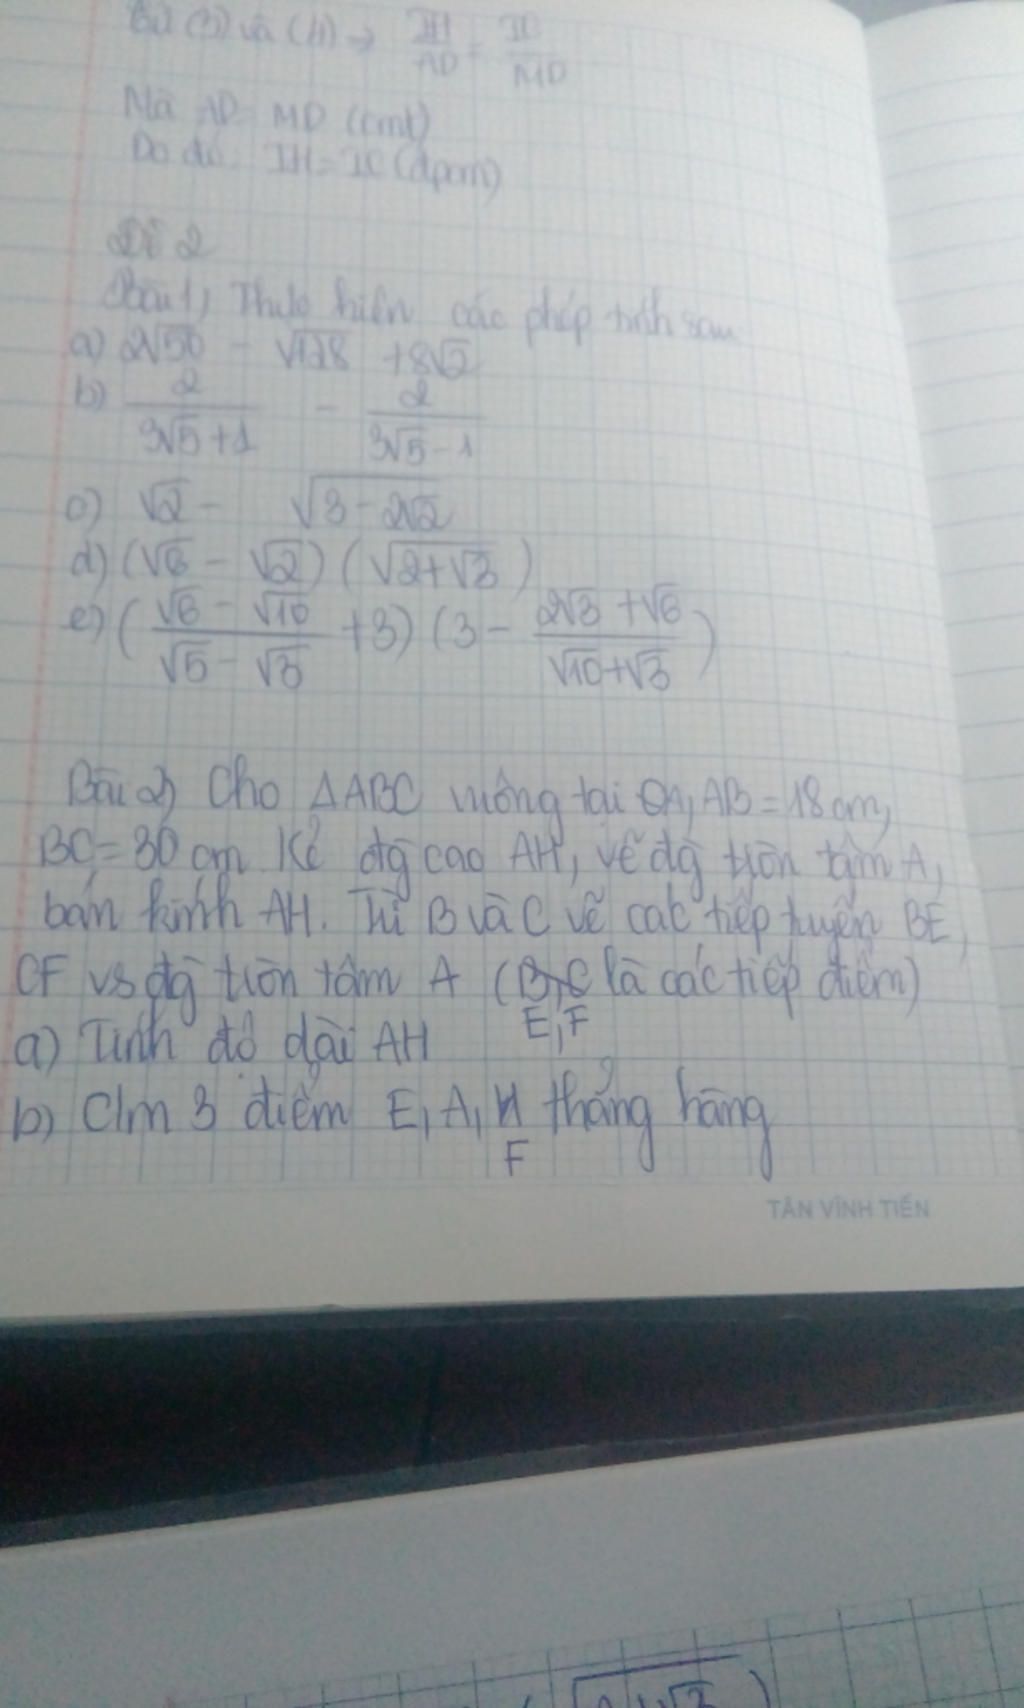 (3) và (4) → IH/AD = IC/MD
Mà AD = MD (cmt)
Do đó IH = IC (đpcm)
Đề 2
Bài 1, Thực hiện các phép tính sau
a) 2√50 - √128 + 8√2
b) 2/(3√5+1) - 2/(3√5-1)
c) √2 - √(3-2√2)
d) (√6 - √2) (√(2+√3))
e) ((√6 - √10)/(√5 - √3) + 3) (3 - (2√3 + √6)/(√10+√3))
Bài 2) Cho ΔABC vuông tại A, AB = 18 cm,
BC = 30 cm Kẻ đg cao AH, vẽ đg tròn tâm A,
bán kính AH. Từ B và C vẽ các tiếp tuyến BE,
CF vs đg tròn tâm A (B, C là các tiếp điểm)
E, F
a) Tính độ dài AH
b) C/m 3 điểm E, A, H thẳng hàng
F
TÂN VĨNH TIẾN